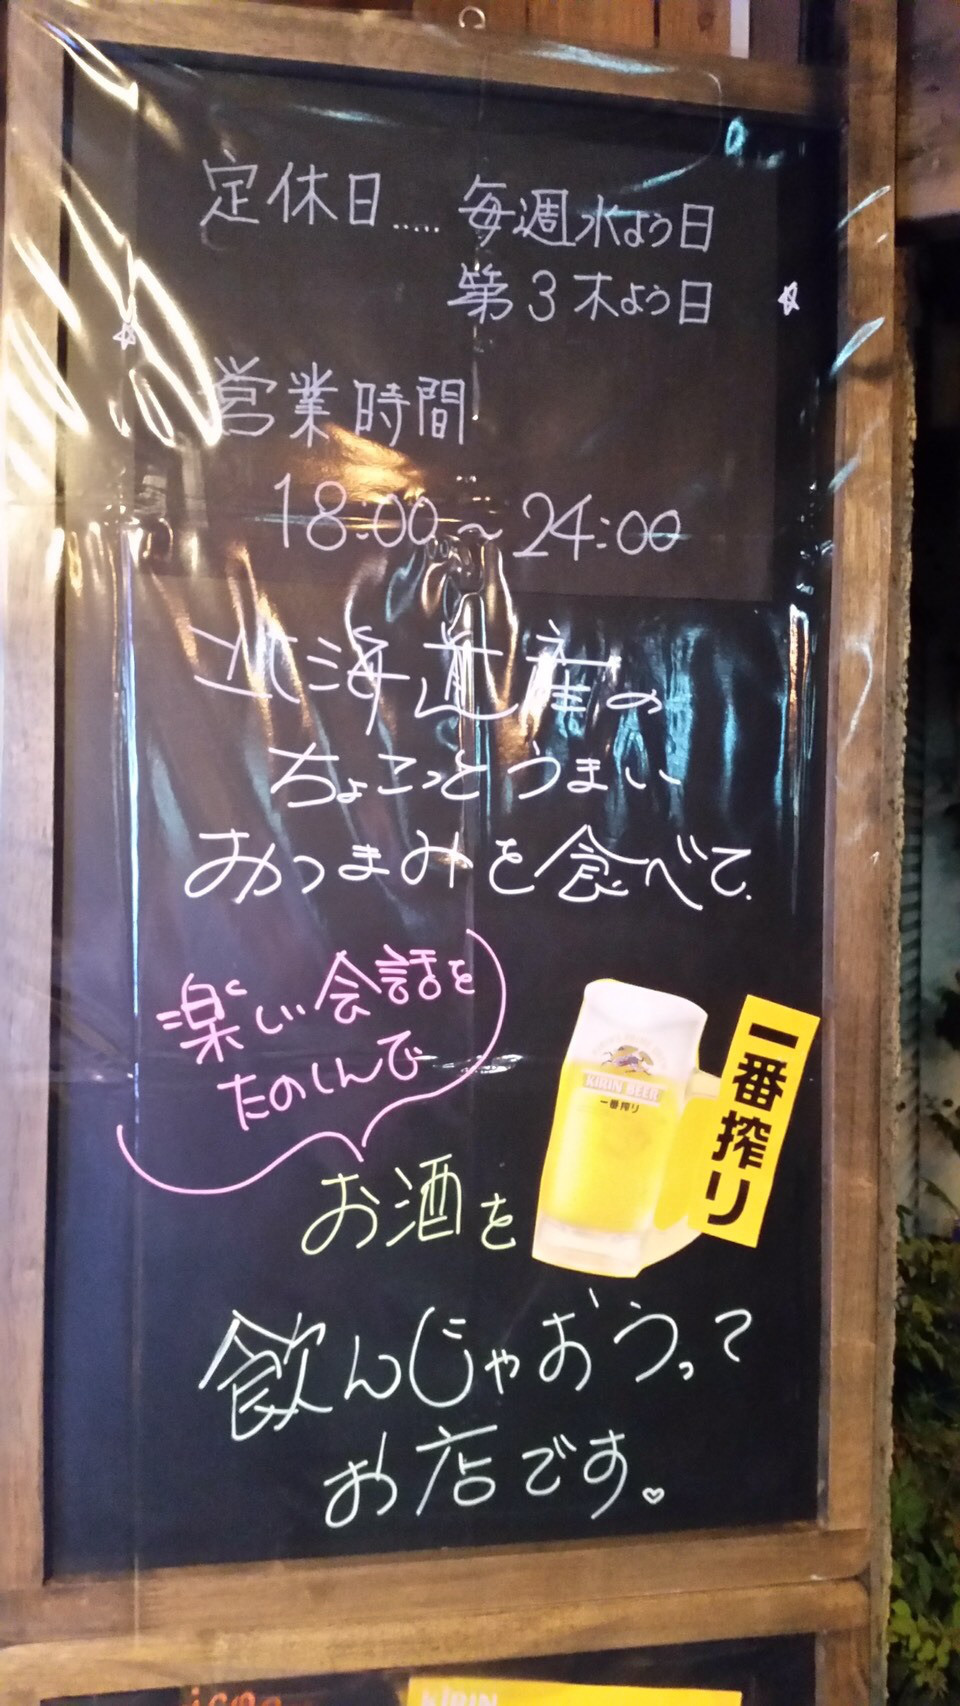 定休日.....毎週水よう日
第3木よう日
営業時間
18:00～24:00
北海道産の
ちょこっとうまい
おつまみを食べて
楽しい会話を
たのしんで
KIRIN BEER
一番搾り
一番搾り
お酒を
飲んじゃおうって
お店です。
KIRIN